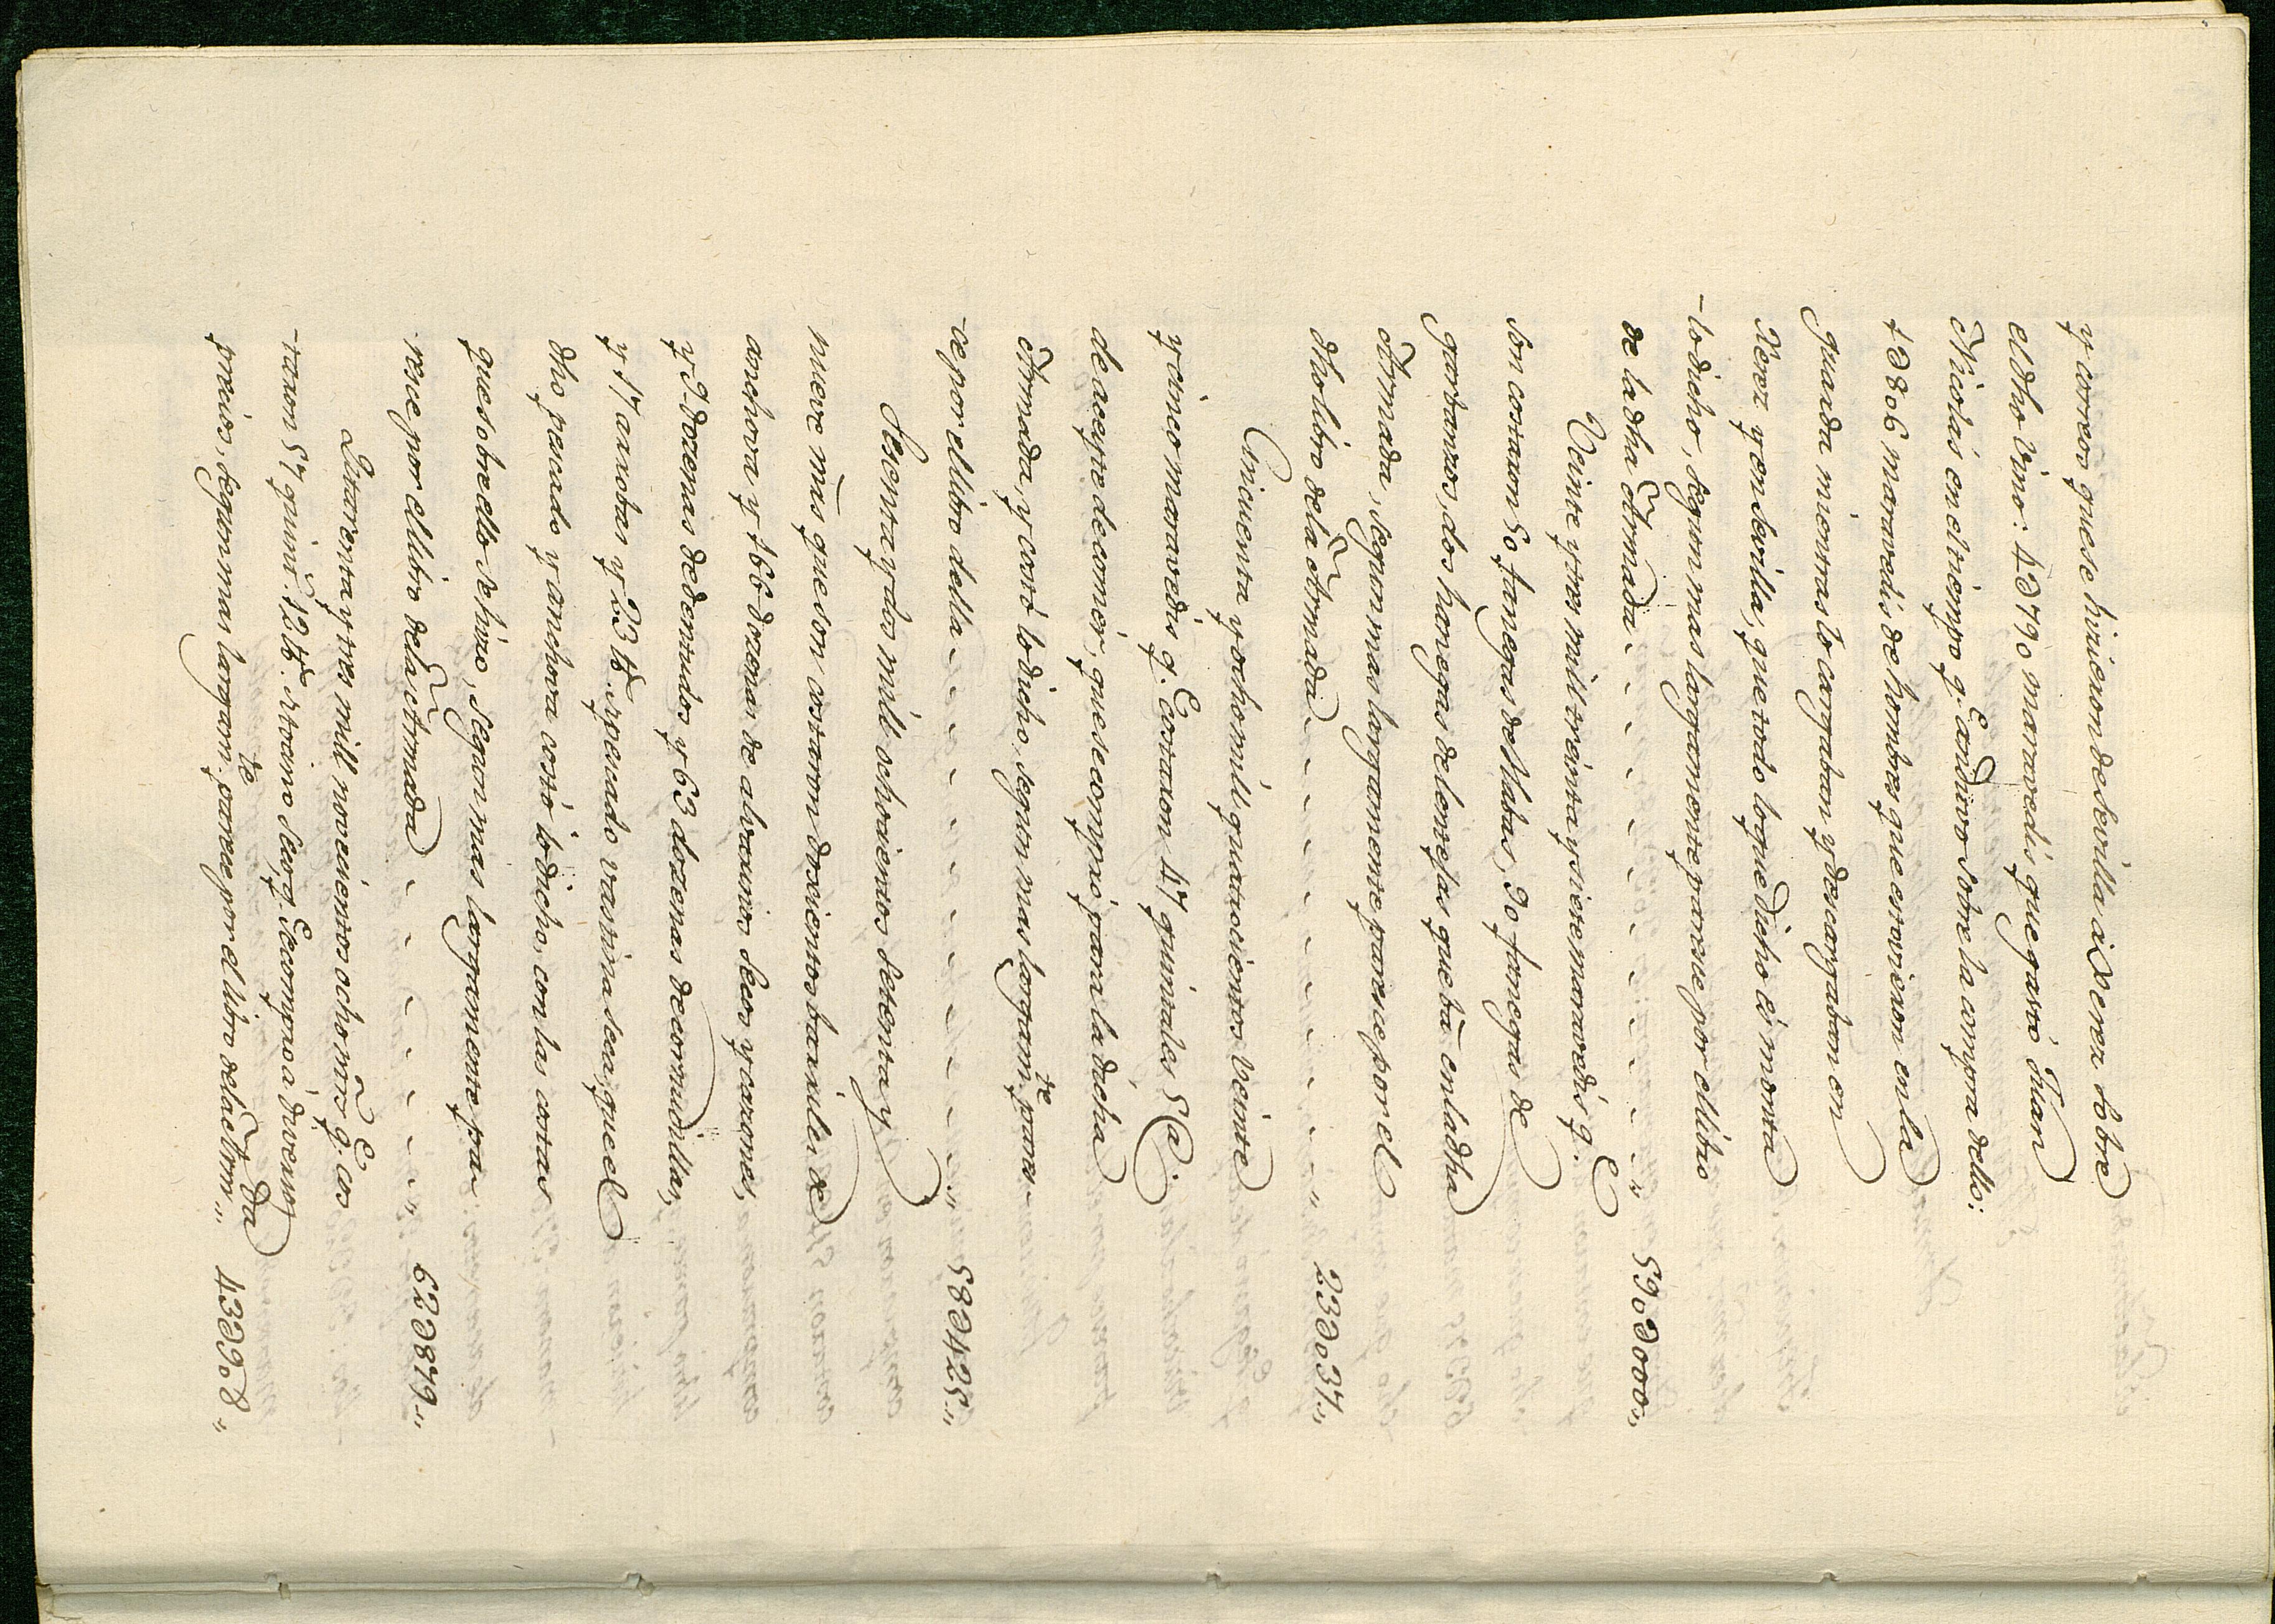 y correos que se hizieron de Sevilla à Xerez sobre
el dho Vino: 4D790 maravedis que gastò Juan
Nicolás en el tiempo q.e anduvo sobre la compra dello:
1D806 maravedis de hombres que estuvieron en la
guarda mientras lo cargaban y descargaban en
Xerez y en Sevilla, que todo lo que dicho es monta
-lo dicho, segun mas largamente parece por el libro
de la dha Armada - - - - - - - - - - „ 590D000„
Veinte y tres mill treinta y siete maravedis q.e
son costaron 50 fanegas de Habas, 90 fanegas de
garbanzos, dos hanegas de lentejas que bā en la dha
Armada, segun mas largamente parece por el
dho libro de la Armada - - - - - - - - - „ 23D037„
Cincuenta y ocho mill quatrocientos veinte
y cinco maravedis q.e costaron 47 quintales 5 @.
de aceyte de comer, que se comprò para la dicha
Armada, y costò lo dicho, segun mas largam.te pares-
-ce por el libro della - - - - - - - - - „ 58D425„
Sesenta y dos mill ochocientos setenta y
nueve m̃rs que son costaron doscientos barriles de
anchova y 166 docenas de albarinos secos y cazones,
y 9 docenas de dentudos y 63 dozenas de cornudillas,
y 17 arrobas y 23 lb.s de pescado vastina seca, que el
dho pescado y anchova costò lo dicho, con las costas
que sobre ello se hizo, segun mas largamente pa-
resce por el libro de la Armada - - - - - - „ 62D879„
Quarenta y tres mill novecientos ocho m̃rs q.e cos
-taron 57 quint.s 12 lb.s de tocino seco q.e se comprò à diversos
precios, segun mas largam.te parece por el libro de la Arm.da „ 43D908„